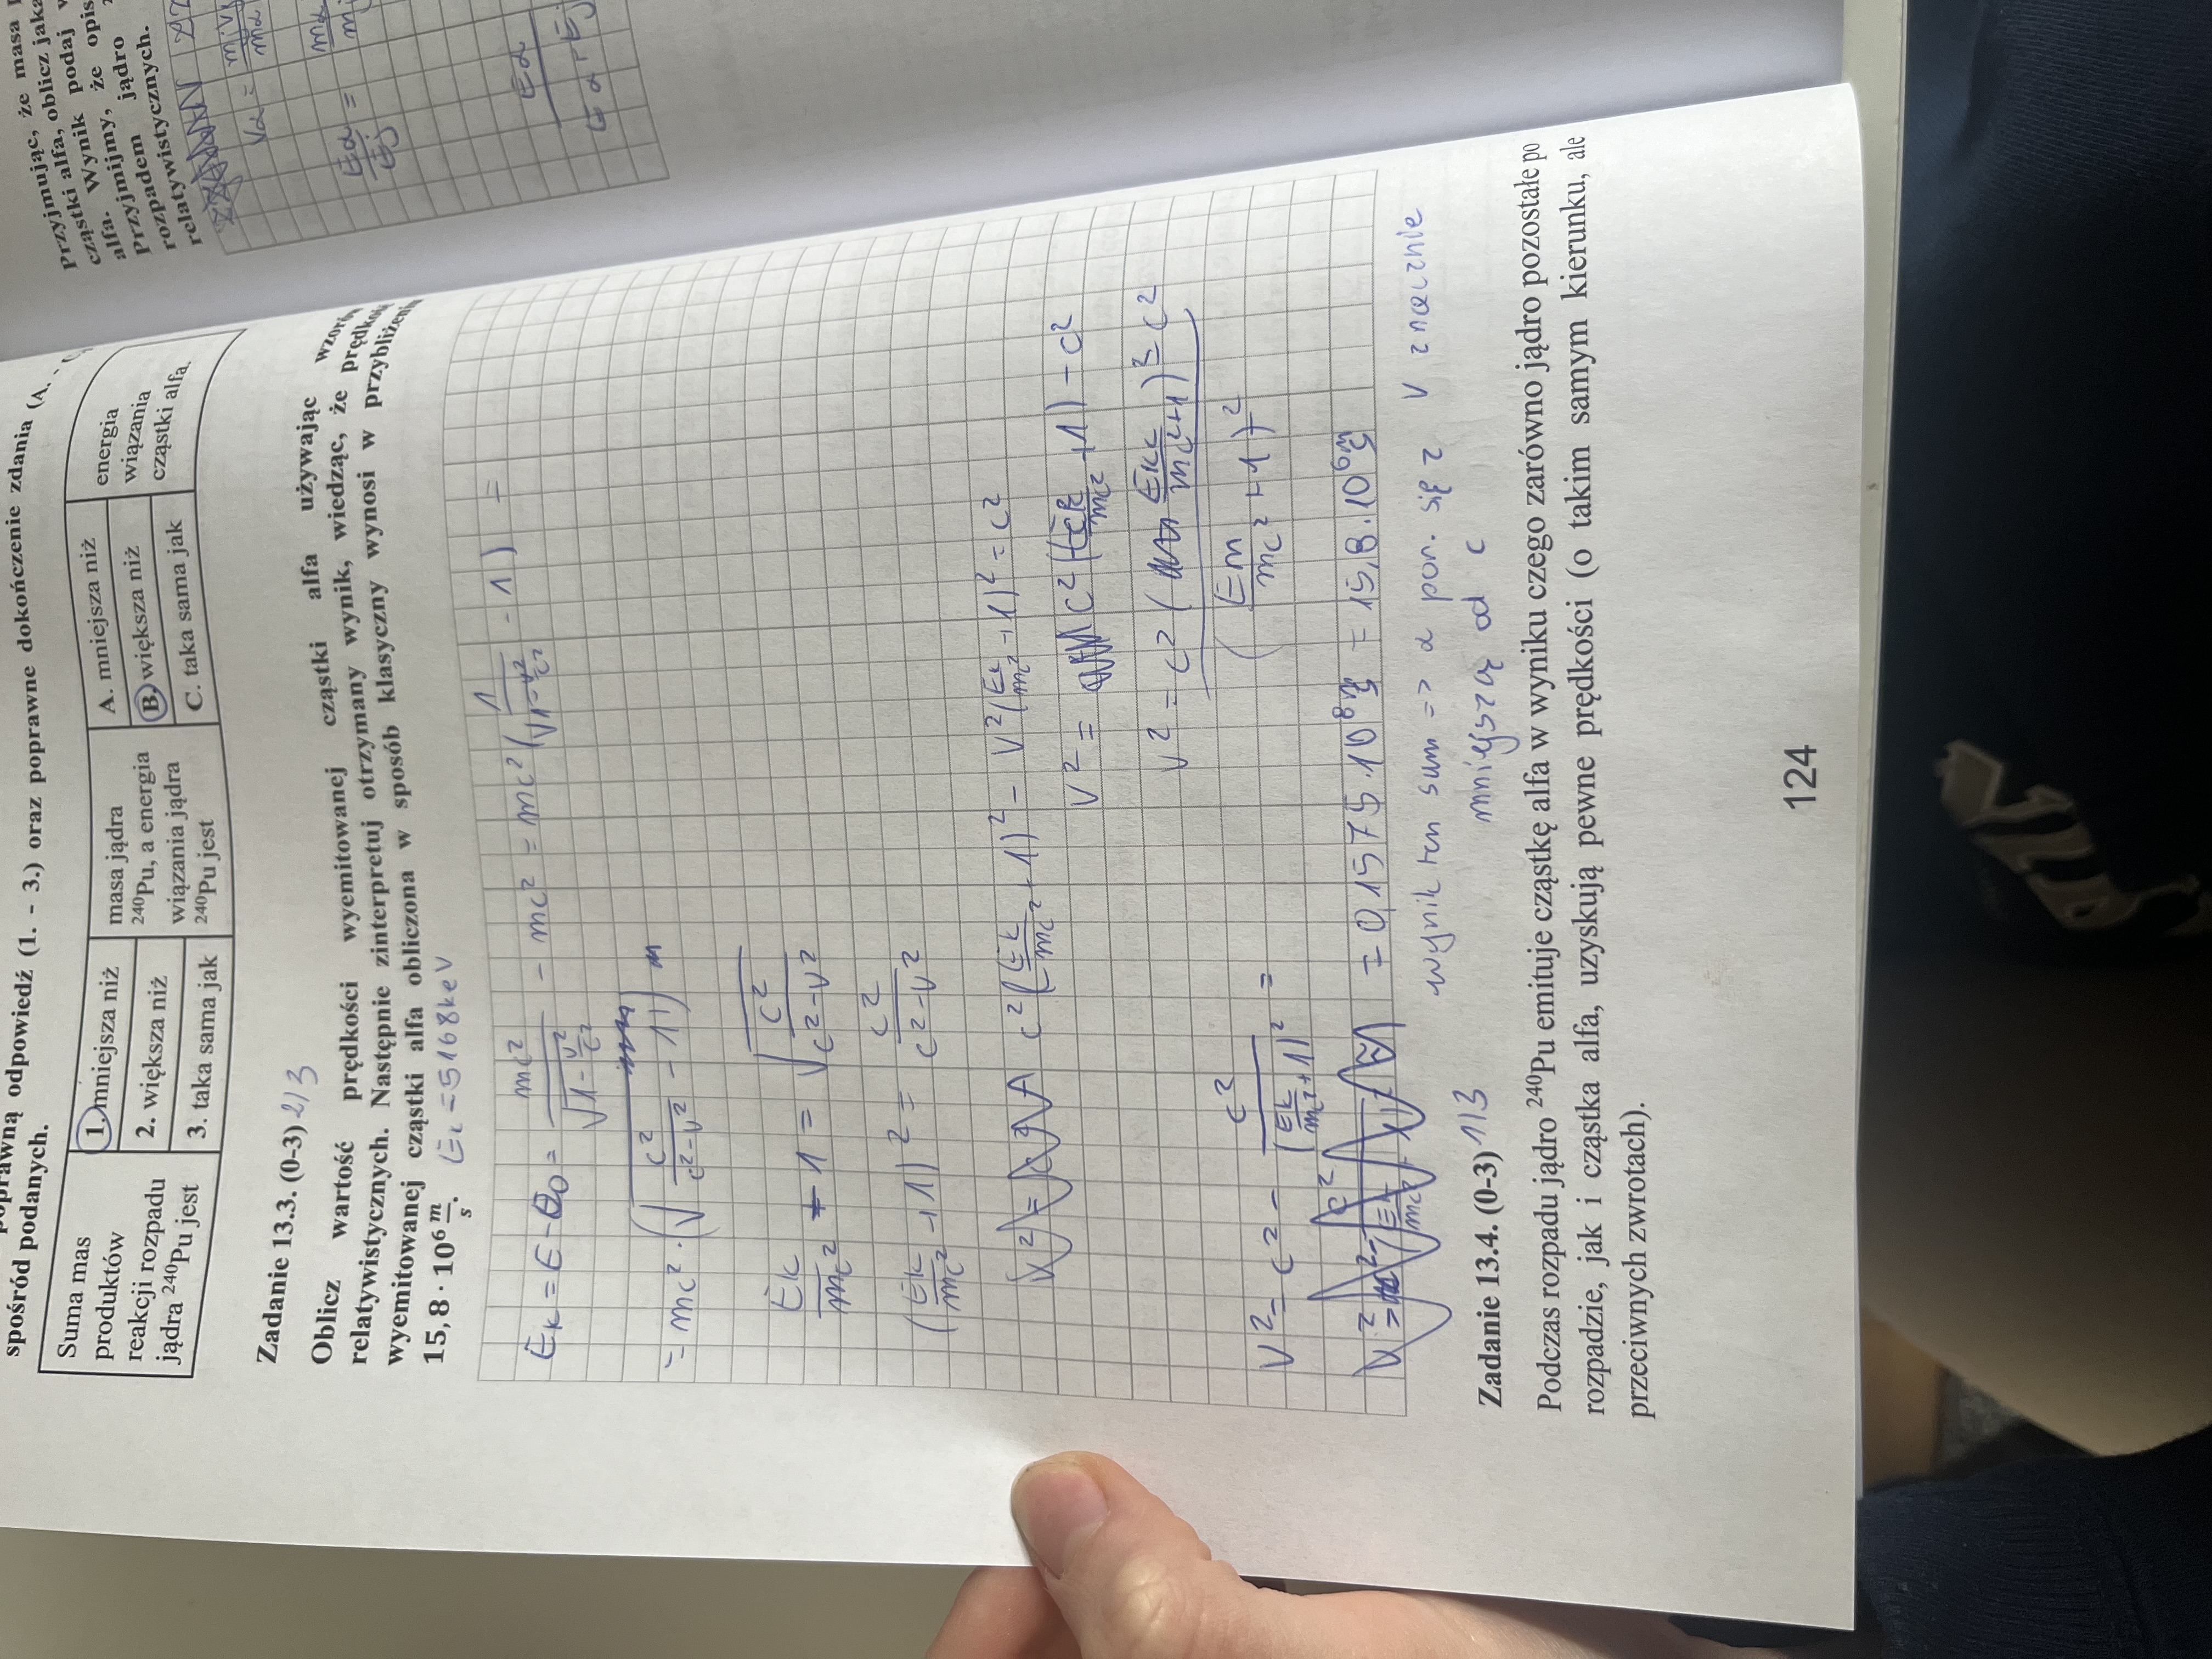 poprawną odpowiedź (1. - 3.) oraz poprawne dokończenie zdania (A. - C.
spośród podanych.
Suma mas
produktów
reakcji rozpadu
jądra ²⁴⁰Pu jest
1. mniejsza niż
2. większa niż
3. taka sama jak
masa jądra
²⁴⁰Pu, a energia
wiązania jądra
²⁴⁰Pu jest
A. mniejsza niż
B. większa niż
C. taka sama jak
energia
wiązania
cząstki alfa.
Zadanie 13.3. (0-3) 2/3
Oblicz wartość prędkości wyemitowanej cząstki alfa używając wzorów
relatywistycznych. Następnie zinterpretuj otrzymany wynik, wiedząc, że prędkość
wyemitowanej cząstki alfa obliczona w sposób klasyczny wynosi w przybliżeniu
15,8 · 10⁶ m/s. Eₖ = 5168 keV
Eₖ = E - E₀ = mc²/√(1-v²/c²) - mc² = mc² (1/√(1-v²/c²) - 1) =
= mc² · (√(c²/(c²-v²)) - 1)
Ek/mc² + 1 = √(c²/(c²-v²))
(Ek/mc² + 1)² = c²/(c²-v²)
c² (Ek/mc² + 1)² - v² (Ek/mc² + 1)² = c²
v² = c² (Ek/mc² + 1) - c²
v² = c² (Ek/mc² + 1)² - c²
(Em/mc² + 1)²
v² = c² - c²/(Ek/mc² + 1)² =
= 0,1575 · 10⁸ m/s = 15,8 · 10⁶ m/s
wynik ten sam => α por. się z v znacznie
mniejszą od c
Zadanie 13.4. (0-3) 1/3
Podczas rozpadu jądro ²⁴⁰Pu emituje cząstkę alfa w wyniku czego zarówno jądro pozostałe po
rozpadzie, jak i cząstka alfa, uzyskują pewne prędkości (o takim samym kierunku, ale
przeciwnych zwrotach).
124
Przyjmując, że masa
cząstki alfa, oblicz jaka
alfa. Wynik podaj
Przyjmijmy, że opis
rozpadem jądro
relatywistycznych.
vα =
Eα/Ej =
Eα
Eα + Ej